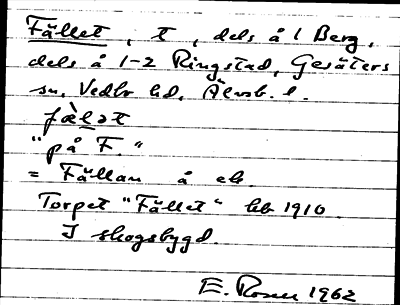 Fället, t, dels å 1 Berg,
dels å 1-2 Ringstad, Gesäters
sn, Vedbo hd, Älvsb. l.
fæ̀lət
"på F."
= Fällan å ek.
Torpet "Fället" beb 1910.
I skogsbygd.
E. Rosen 1962